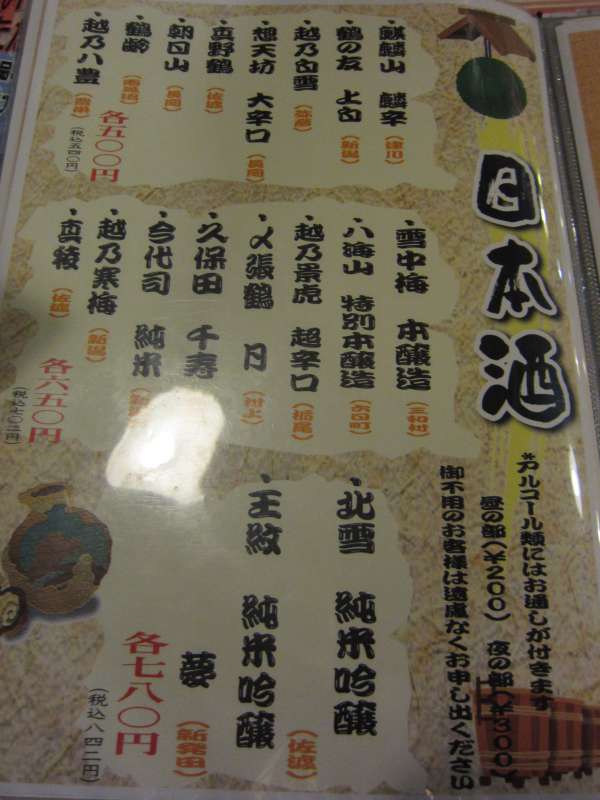 日本酒
・麒麟山 麟辛（津川）
・鶴の友 上白（新潟）
・越乃白雪（弥彦）
・想天坊 大辛口（長岡）
・真野鶴（佐渡）
・朝日山（長岡）
・鶴齢（南魚沼）
・越乃八豊
各五〇〇円
（税込五四〇円）
・雪中梅 本醸造（三和村）
・八海山 特別本醸造（六日町）
・越乃景虎 超辛口（栃尾）
・〆張鶴 月（村上）
・久保田 千寿
・今代司 純米
・越乃寒梅（新潟）
・真稜（佐渡）
各六五〇円
（税込七〇二円）
・北雪 純米吟醸（佐渡）
・王紋 純米吟醸
夢（新発田）
各七八〇円
（税込八四二円）
*アルコール類にはお通しが付きます
昼の部（¥200） 夜の部（¥300）
御不用のお客様は遠慮なくお申し出ください